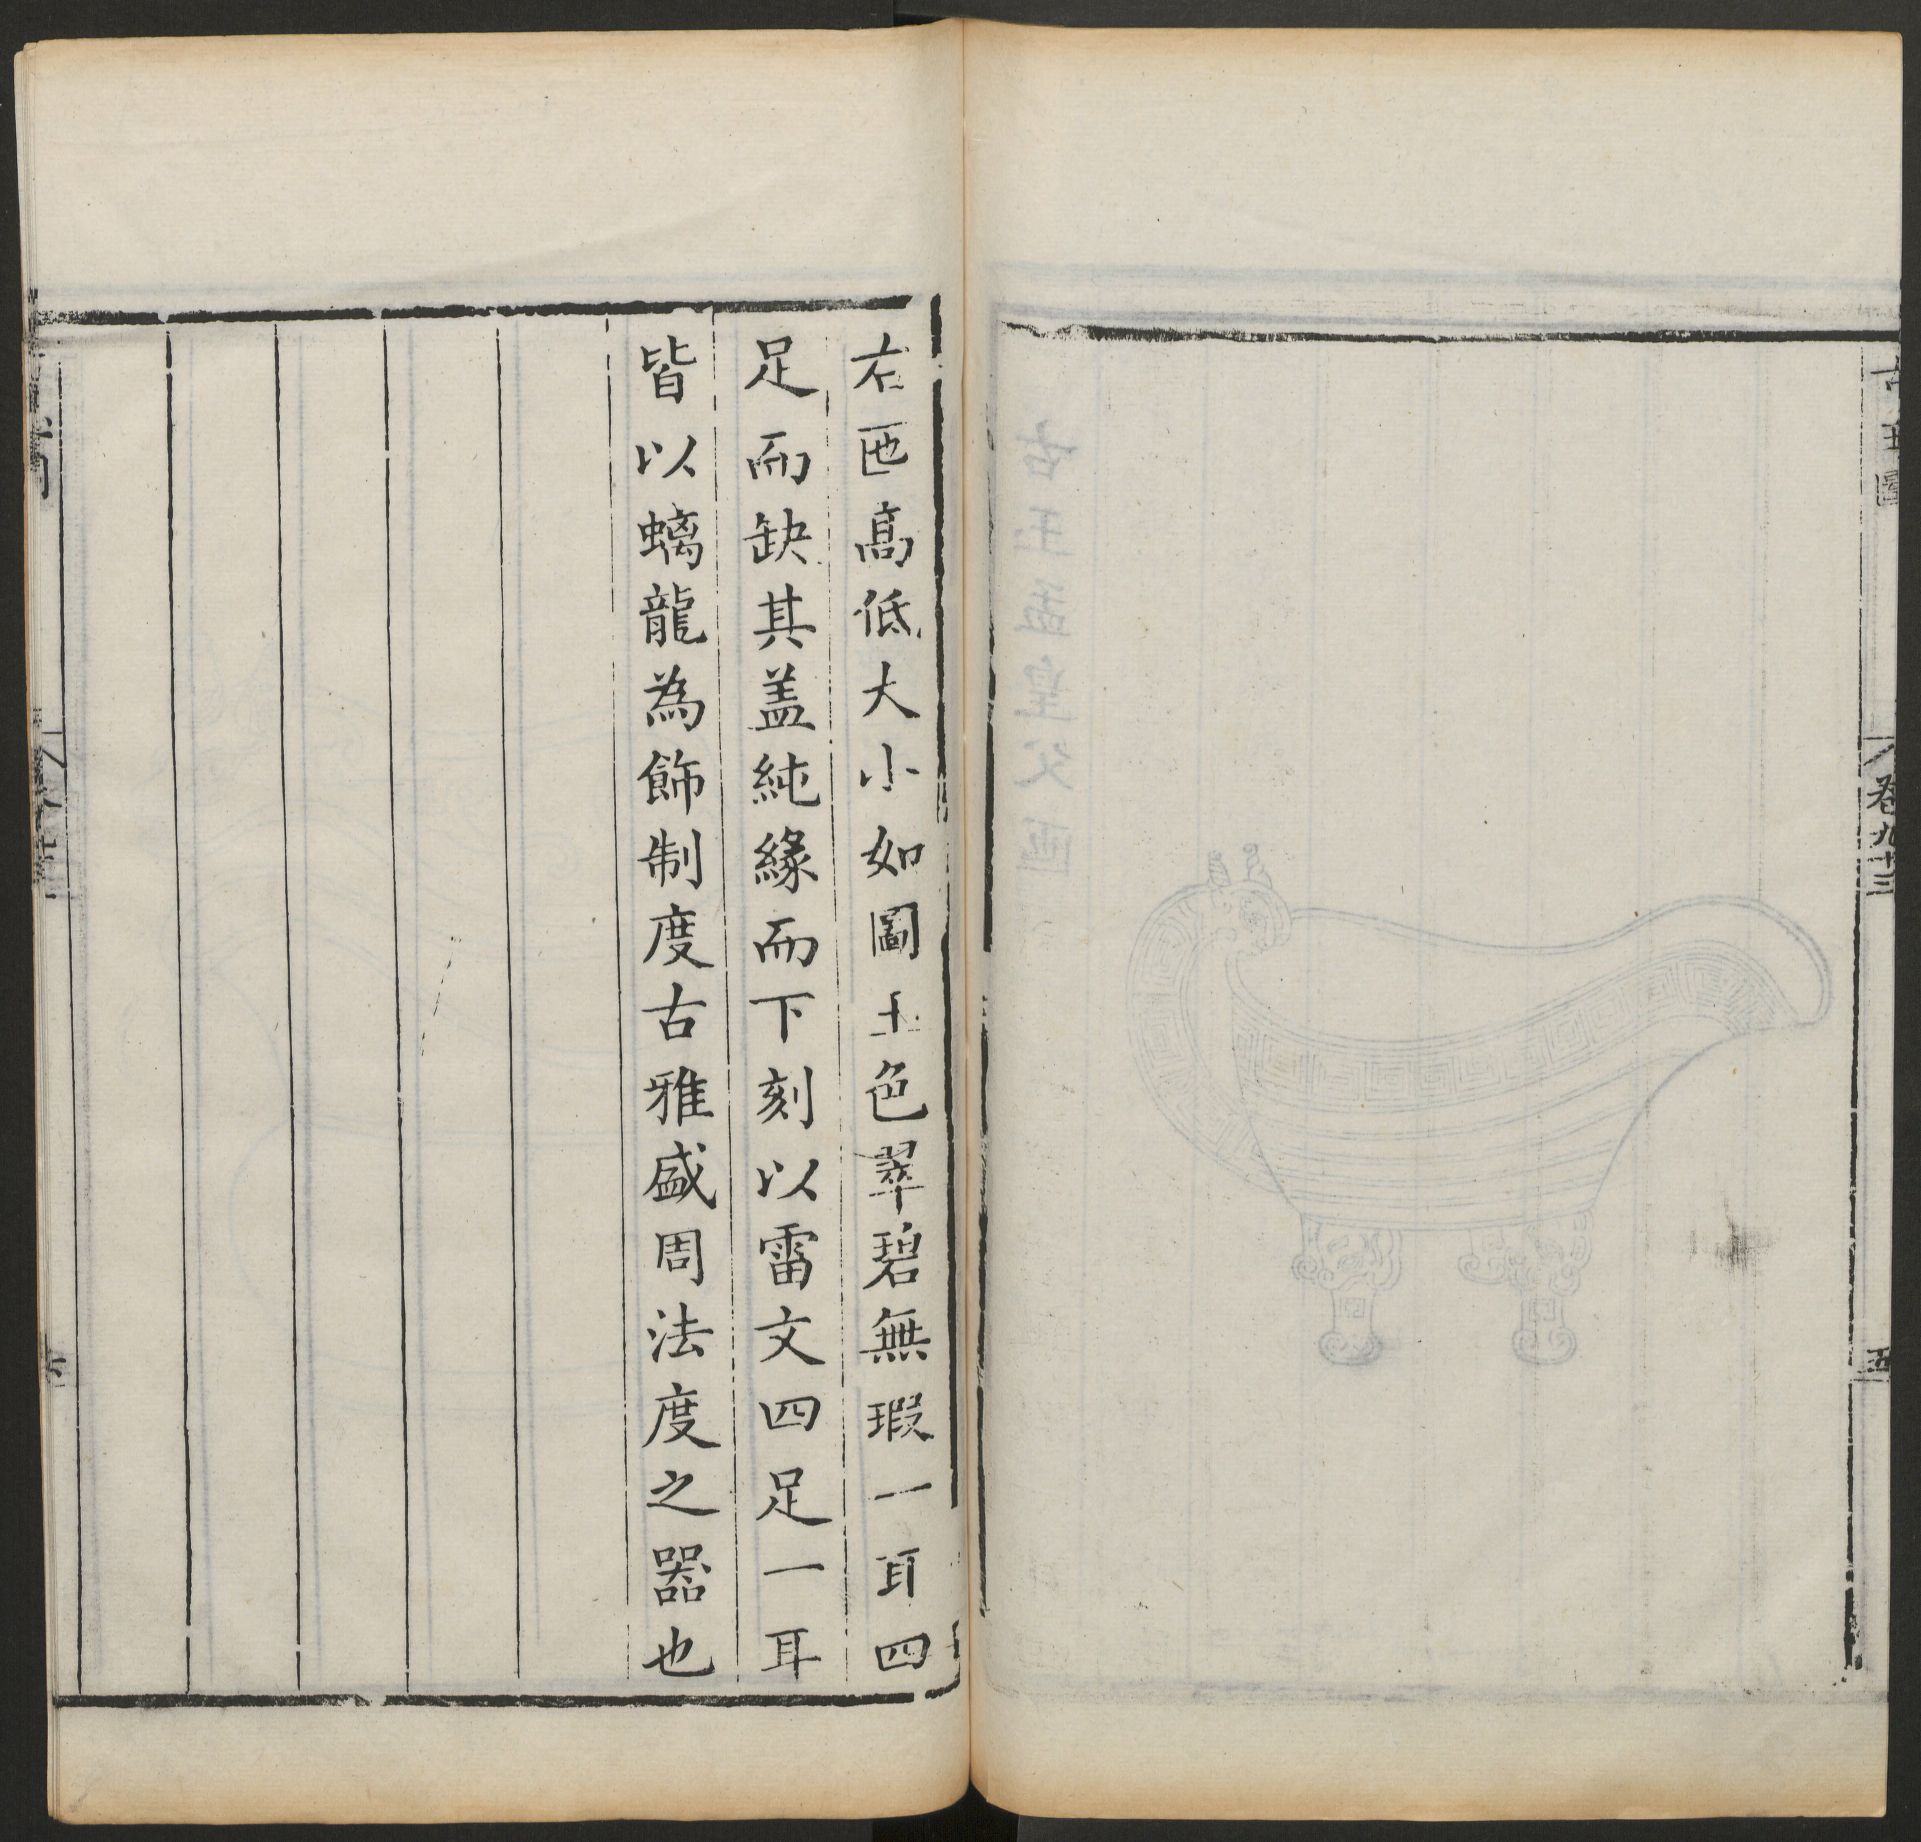 古玉圖
卷九十三
五
右匜高低大小如圖玉色翠碧無瑕一耳四
足而缺其盖純緣而下刻以雷文四足一耳
皆以螭龍為飾制度古雅盛周法度之器也